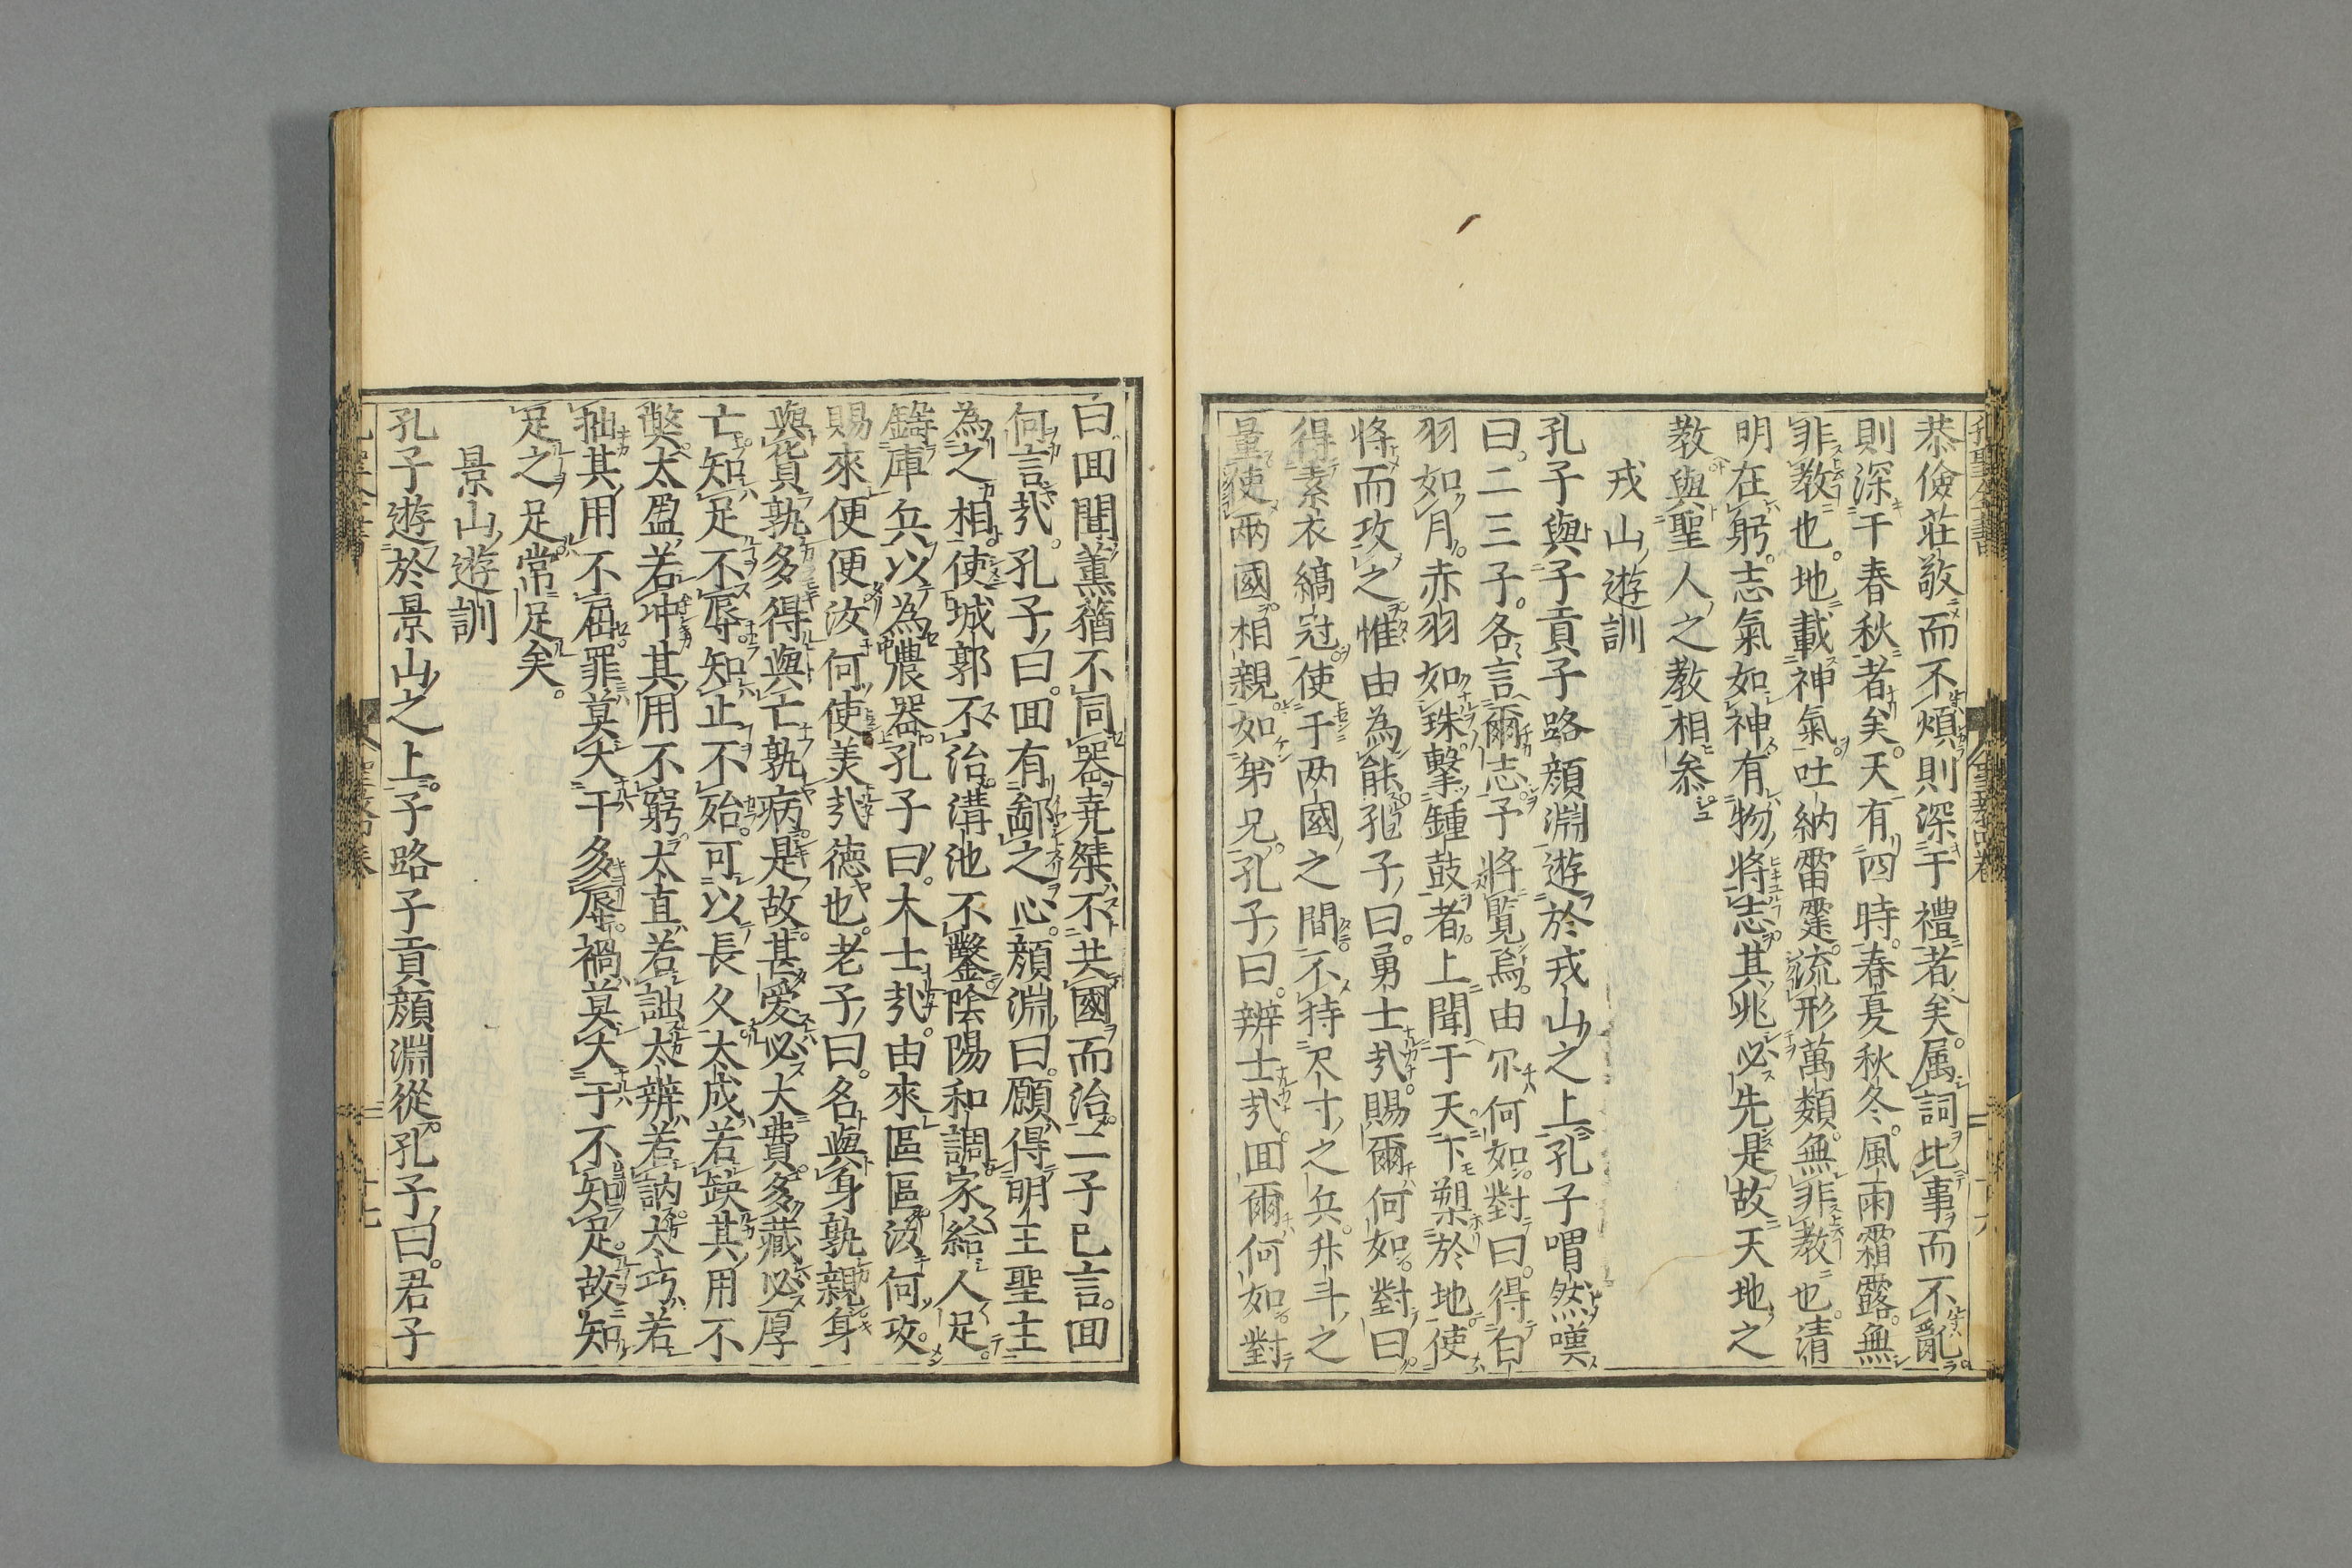 恭儉莊敬而不煩則深于禮者矣。属詞比事而不亂
則深于春秋者矣。天有四時。春夏秋冬。風雨霜露。無
非教也。地載神氣。吐納雷霆。流形萬類。無非教也。清
明在躬。志氣如神。有物將志。其兆必先。是故天地之
教與聖人之教相叅
戎山遊訓
孔子與子貢子路顔淵遊於戎山之上。孔子喟然嘆
曰。二三子。各言爾志。予將覧焉。由尓何如。對曰。得白
羽如月。赤羽如珠。擊鍾鼓者。上聞于天。下槊於地。使
將而攻之。惟由為能。孔子曰。勇士㢤。賜爾何如。對曰。
得素衣縞冠。使于两國之間。不持尺寸之兵。升斗之
量。使兩國相親。如弟兄。孔子曰。辨士㢤。回爾何如。對
曰回聞薫蕕不同器。尭桀不共國而治。二子已言。回
何言㢤。孔子曰。回有鄙之心。顔淵曰。願得明王聖主
為之相。使城郭不治。溝池不鑿。陰陽和調。家給人足。
鑄庫兵以為農器。孔子曰。大士㢤。由來區區汝何攻。
賜來便便汝何使。美㢤德也。老子曰。名與身孰親。身
與貨孰多。得與亡孰病。是故。甚愛必大費。多藏必厚
亡。知足不辱。知止不殆。可以長久。太成若缺其用不
獘。太盈若冲其用不窮。太直若詘太辨若訥太巧若
拙其用不屈。罪莫大于多辱。禍莫大于不知足。故知
足之足。常足矣。
景山遊訓
孔子遊於景山之上。子路子貢顔淵從。孔子曰。君子